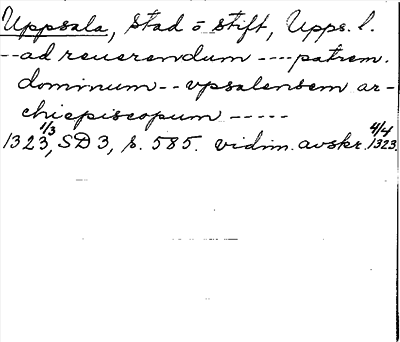 Uppsala, stad o stift, Upps. l.
-- ad reuerendum ---- patrem.
dominum -- vpsalensem ar-
chiepiscopum -----
1323 1/3, SD 3, s. 585. vidim. avskr. 1323 4/4.